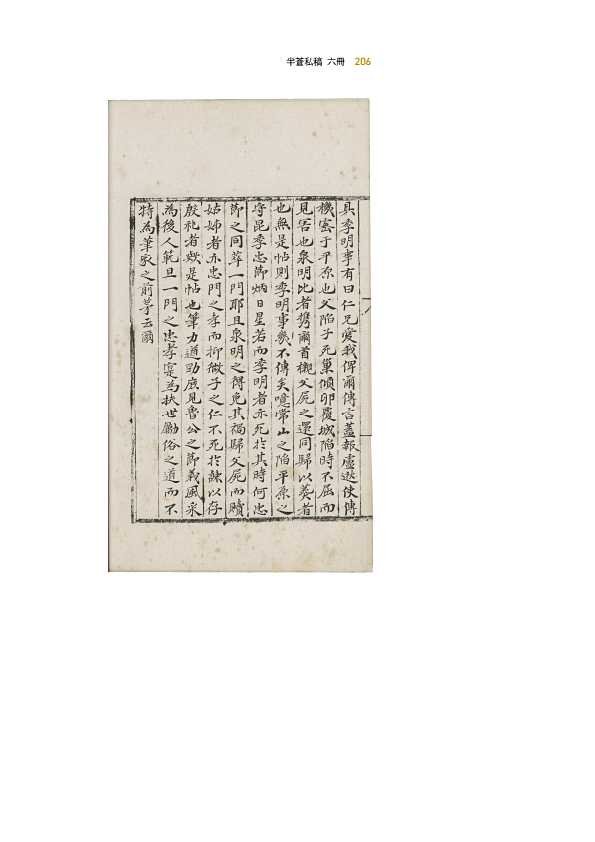 半蒼私稿 六冊 206
具季明事有曰仁兄愛我俾爾傳言盖報盧逖使傳
機密于平原也父陷子死巢傾卵覆城陷時不屈而
見害也泉明比者携爾首櫬父屍之還同歸以葬者
也無是帖則季明事幾不傳矣噫常山之陷平原之
守昆季忠節炳日星若而季明者亦死於其時何忠
節之同萃一門耶且泉明之得免其禍歸父屍而贖
姑姊者亦忠門之孝而抑微子之仁不死於諫以存
殷祀者歟是帖也筆力遒勁庶見魯公之節義風采
為後人範且一門之忠孝寔為扶世勵俗之道而不
特為筆家之前茅云爾